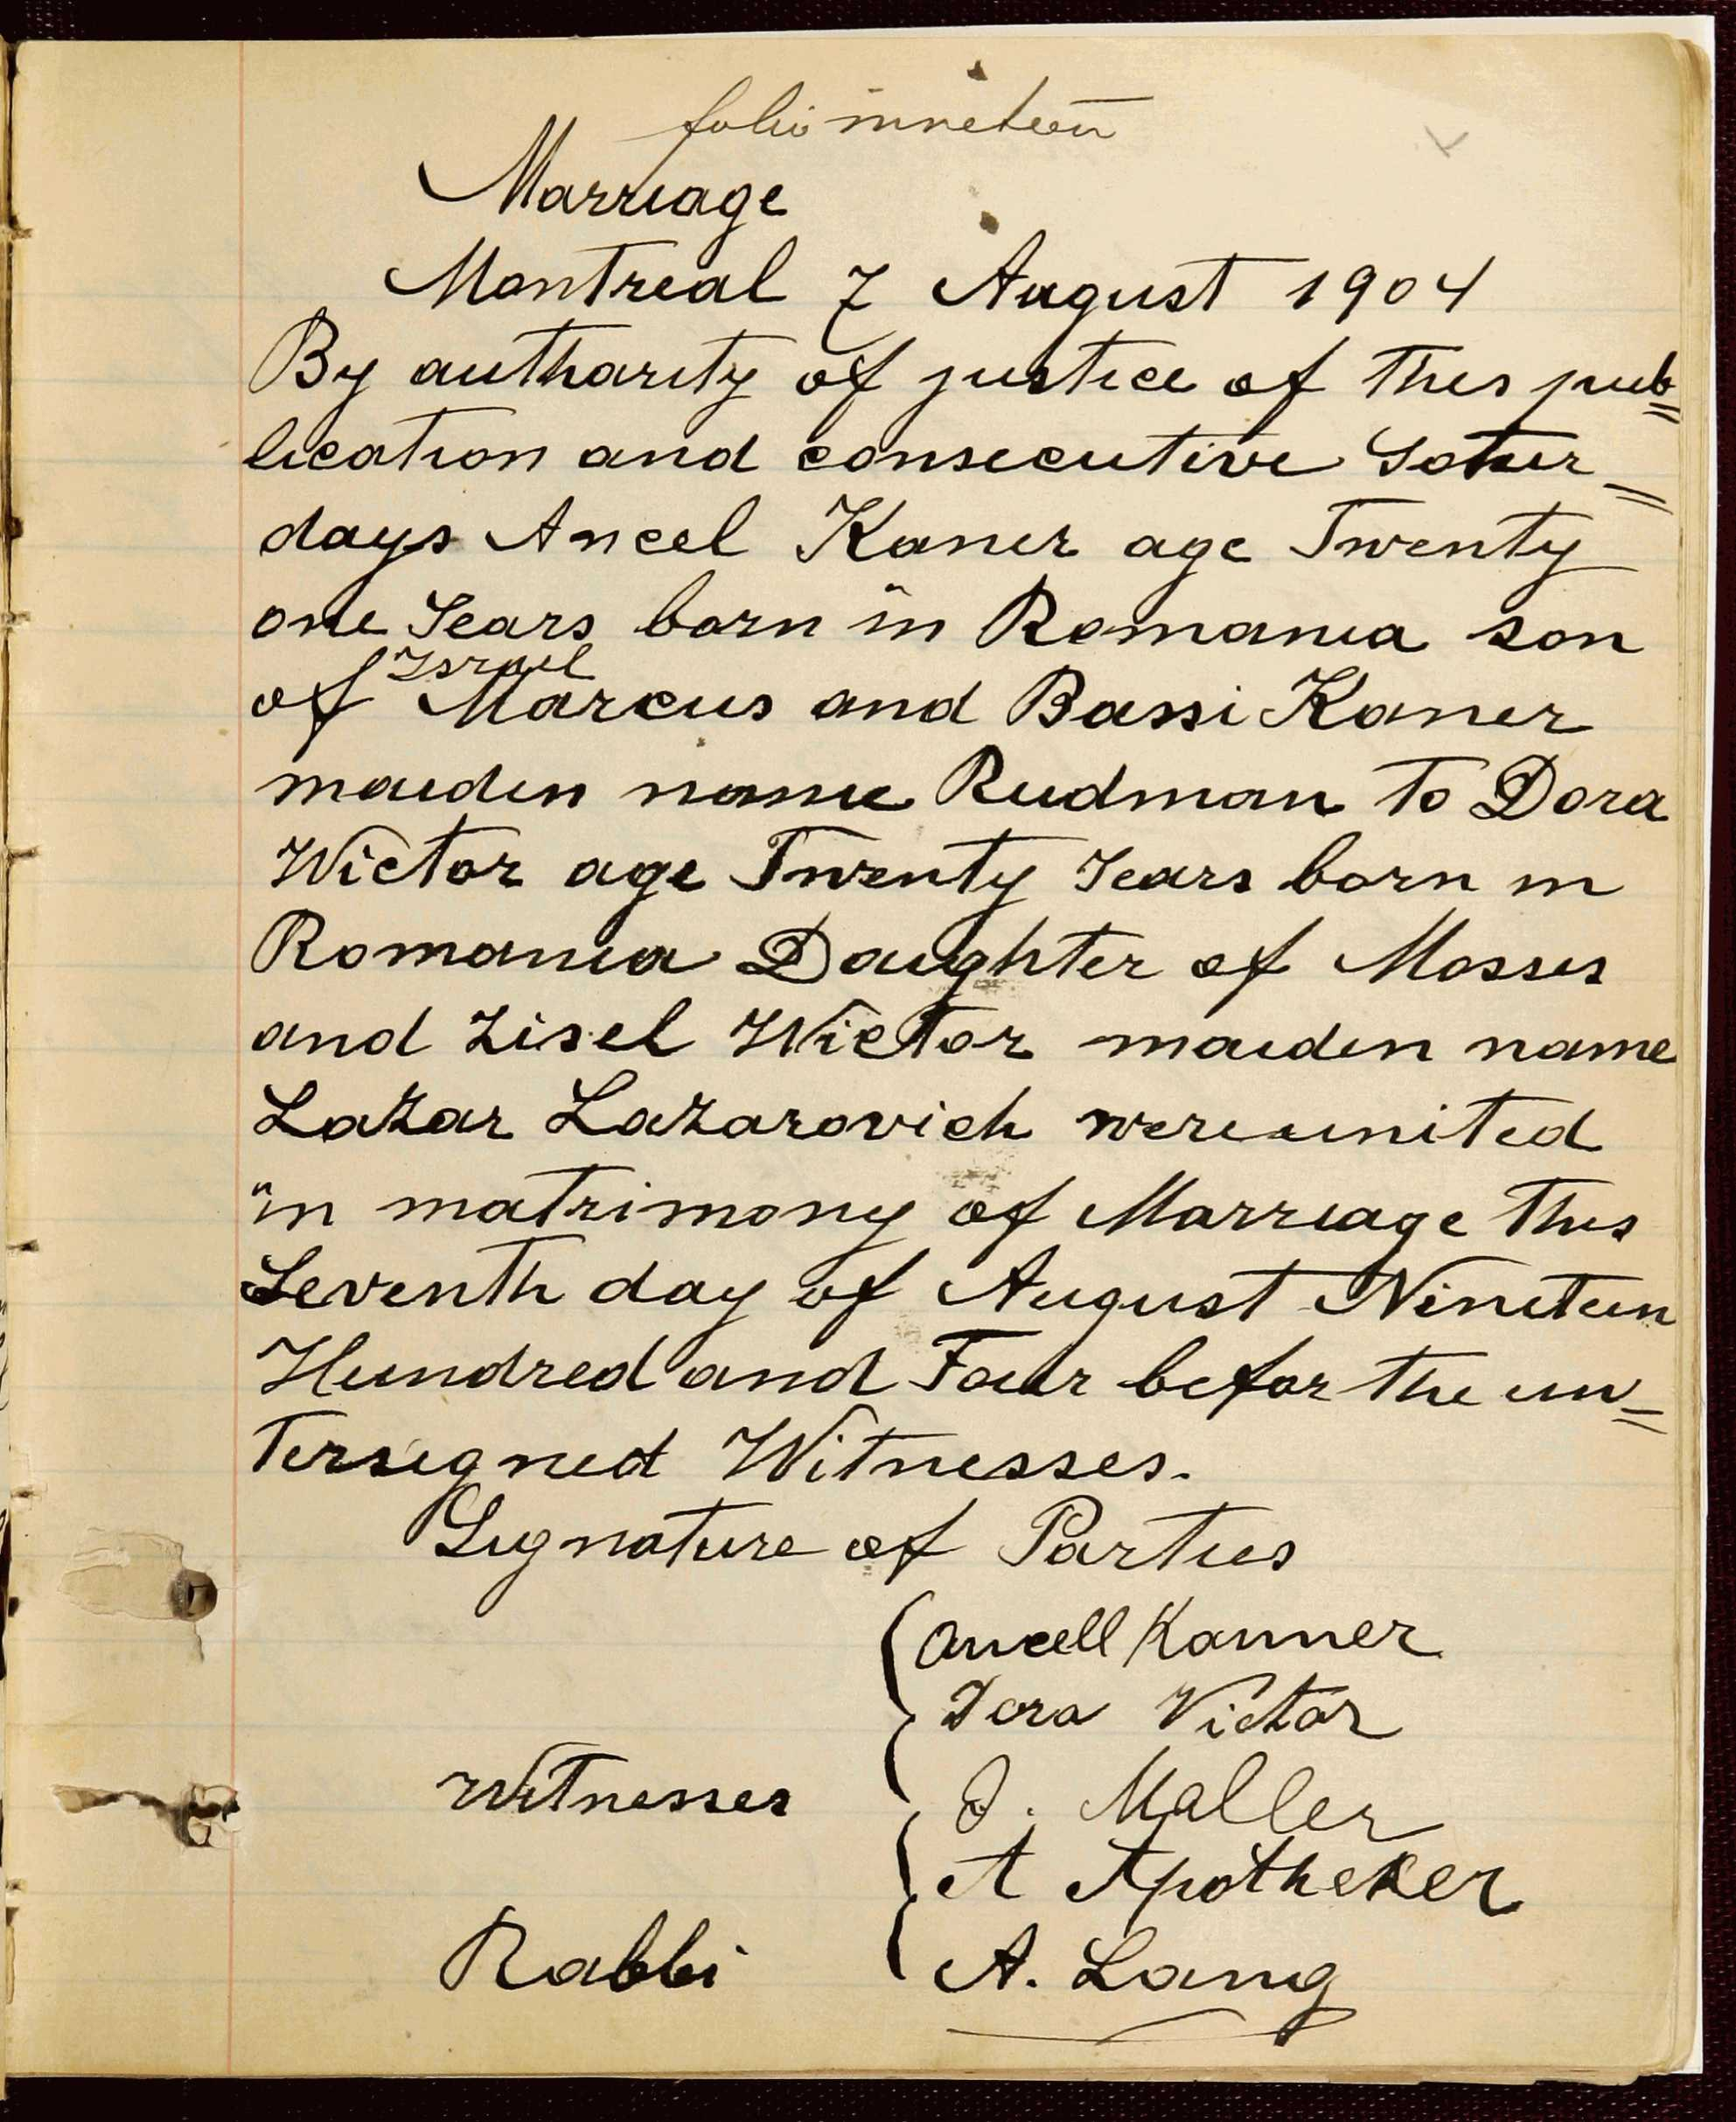 folio nineteen
Marriage
Montreal 7 August 1904
By autharity of justice of this pub=
lication and consecutive Satur=
days Ancel Kaner age Twenty
one Years born in Romania son
Israel
of Marcus and Bassi Kaner
maiden name Rudman to Dora
Wictor age Twenty Years born in
Romania Daughter of Mosses
and Zisel Wictor maiden name
Lazar Lazarovich were united
in matrimony of Marriage this
Seventh day of August Nineteen
Hundred and Four befor the un=
tersigned Witnesses.
Signature of Parties
Ancell Kanner
Dora Victor
Witnesses J. Maller
A Apotheker
Rabbi A. Lang